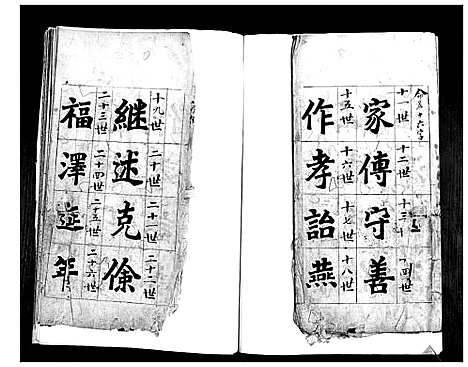 命名十六字
十一世 十二世 十三 十四世
家傳守善
十五世 十六世 十七世 十八世
作孝詒燕
十九世 二十世 二十一世 二十二世
継述克俆
二十三世 二十四世 二十五世 二十六世
福澤延年